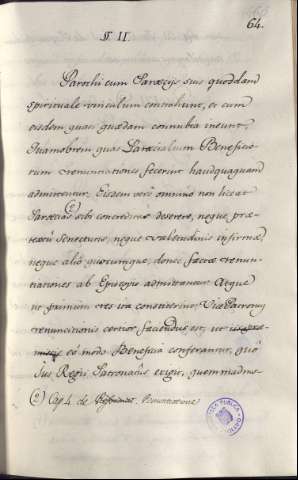 64.
§. II.
Parochi cum Paræcijs suis quoddam
spirituale vinculum contrahunt, et cum
eisdem quasi quædam connubia ineunt;
Quamobrem quas Paræcialium Beneficio-
rum renunciationes fecerint haudquaquam
admittentur. Eisdem verò omnino non liceat
Paræcias (2) sibi concreditas deserere, neque præ-
textu Senectutis, neque valetudinis infirmæ,
neque alio quocumque, donec factæ renun-
tiationes ab Episcopo admittantur. Atque
ut primum res ita constiterint, Vice Patronus
renuncionis certior faciendus est, ut
eò modo Beneficia conferantur, quò
Jus Regii Patronatûs exigit, quemadmo-
(2) Cap. 4. de Renuntiatione